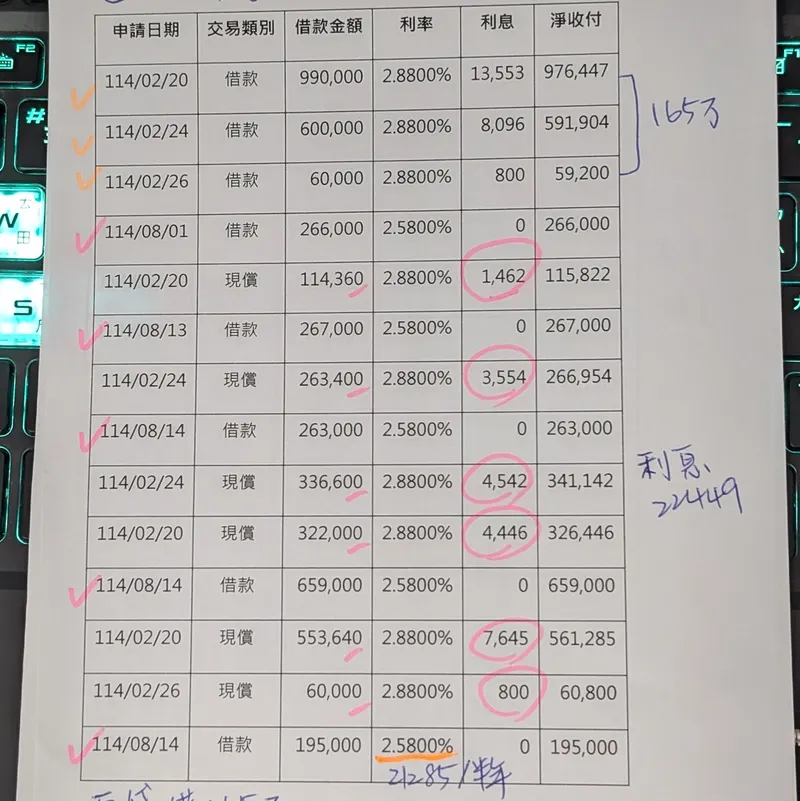 申請日期 交易類別 借款金額 利率 利息 淨收付
114/02/20 借款 990,000 2.8800% 13,553 976,447
165万
114/02/24 借款 600,000 2.8800% 8,096 591,904
114/02/26 借款 60,000 2.8800% 800 59,200
114/08/01 借款 266,000 2.5800% 0 266,000
114/02/20 現償 114,360 2.8800% 1,462 115,822
114/08/13 借款 267,000 2.5800% 0 267,000
114/02/24 現償 263,400 2.8800% 3,554 266,954
114/08/14 借款 263,000 2.5800% 0 263,000
利息
22449
114/02/24 現償 336,600 2.8800% 4,542 341,142
114/02/20 現償 322,000 2.8800% 4,446 326,446
114/08/14 借款 659,000 2.5800% 0 659,000
114/02/20 現償 553,640 2.8800% 7,645 561,285
114/02/26 現償 60,000 2.8800% 800 60,800
114/08/14 借款 195,000 2.5800% 0 195,000
21285/半年